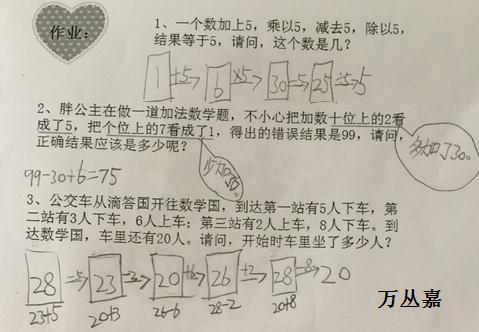 作业：
1、一个数加上5，乘以5，减去5，除以5，
结果等于5，请问，这个数是几？
1 +5→ 6 ×5→ 30 -5→ 25 ÷5→5
2、胖公主在做一道加法数学题，不小心把加数十位上的2看
成了5，把个位上的7看成了1，得出的错误结果是99，请问，
正确结果应该是多少呢？
多加了30。
99-30+6=75
3、公交车从滴答国开往数学国，到达第一站有5人下车，第
二站有3人下车，6人上车；第三站有2人上车，8人下车。到
达数学国，车里还有20人。请问，开始时车里坐了多少人？
28 -5→ 23 -3→ 20 +6→ 26 +2→ 28 -8→ 20
23+5 20+3 26-6 28-2 20+8
万丛嘉